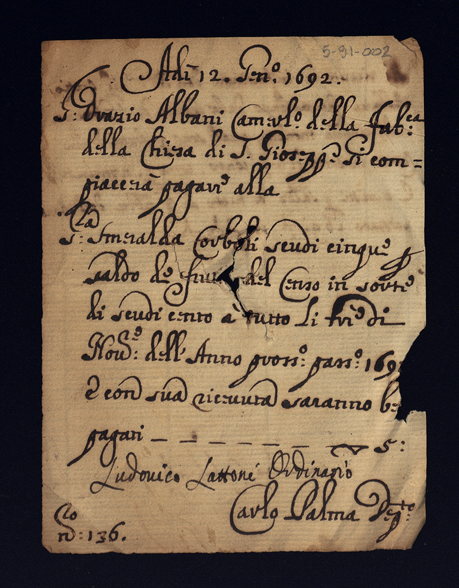 5-91-002
Adi 12. Gen.º 1692.
S: Orazio Albani Camerl.º della Fab.ca
della Chiesa di S. Gioseppe si com=
piacerà pagare alla
S.ra Smeralda Corboli scudi cinque p
saldo de frutti del Censo in sorte
di scudi cento à tutto li tre di
Nov.e dell'Anno pross.º pass.º 169
e con sua ricevuta saranno be
pagati — — — — — — — 5:
Ludovico Lattoni Ordinario
Carlo Palma Dep.to
n.º: 136.